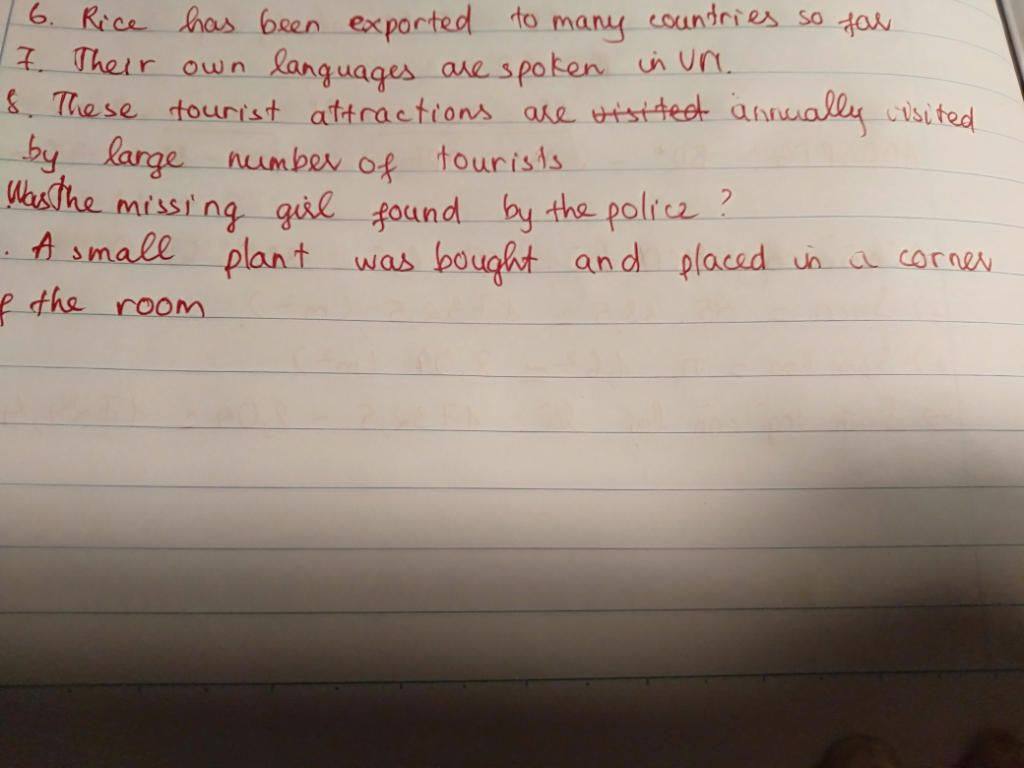 6. Rice has been exported to many countries so far
7. Their own languages are spoken in VN.
8. These tourist attractions are visited annually visited
by large number of tourists
Was the missing girl found by the police ?
. A small plant was bought and placed in a corner
f the room